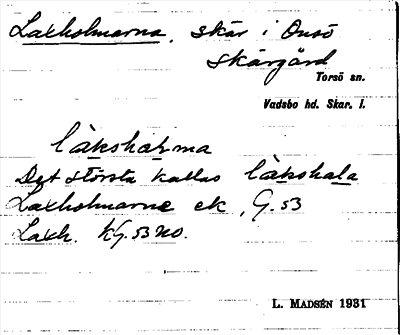 Laxholmarna, skär i Onsö
skärgård
Torsö sn.
Vadsbo hd. Skar. l.
làksharma
Det största kallas làkshala
Laxholmarne ek, G. 53
Laxh. KG. 53 NO.
L. MADSÉN 1931